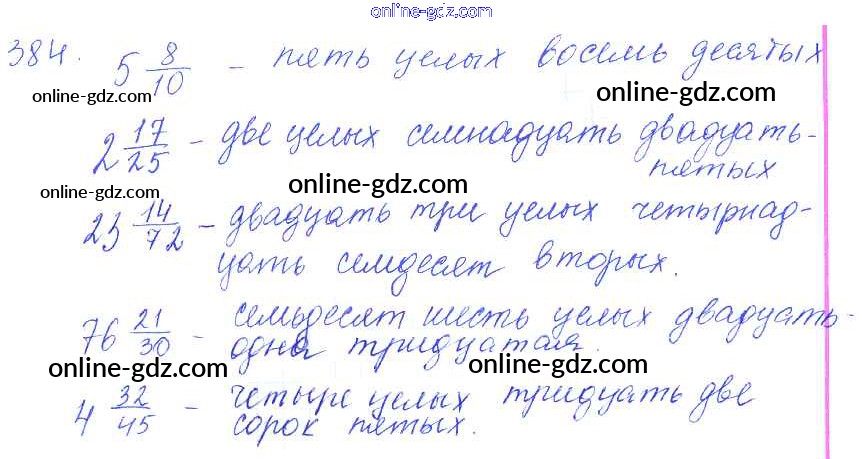 online-gdz.com
384. 5 8/10 – пять целых восемь десятых
online-gdz.com online-gdz.com
2 17/25 – две целых семнадцать двадцать-
пятых
online-gdz.com online-gdz.com
23 14/72 – двадцать три целых четырнад-
цать семдесят вторых.
76 21/30 – семьдесят шесть целых двадцать-
одна тридцатая.
online-gdz.com online-gdz.com
4 32/45 – четыре целых тридцать две
сорок пятых.
online-gdz.com online-gdz.com